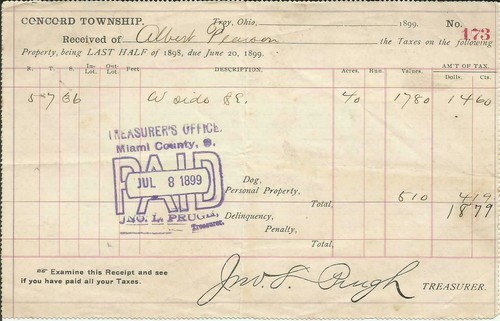 CONCORD TOWNSHIP. Troy, Ohio, 1899. No. 173
Received of Albert Pearson the Taxes on the following
Property, being LAST HALF of 1898, due June 20, 1899.
R. T. S. In-Lot. Out-Lot. Feet DESCRIPTION. Acres. Hun. Values. AM'T OF TAX.
Dolls. Cts.
5 7 36 W side SE. 40 1780 14 60
TREASURER'S OFFICE.
Miami County, O.
PAID
JUL 8 1899
JNO. L. PRUGH,
Treasurer.
Dog,
Personal Property, 510 4 19
Total, 18 79
Delinquency,
Penalty,
Total,
Examine this Receipt and see
if you have paid all your Taxes.
Jno. L. Prugh TREASURER.